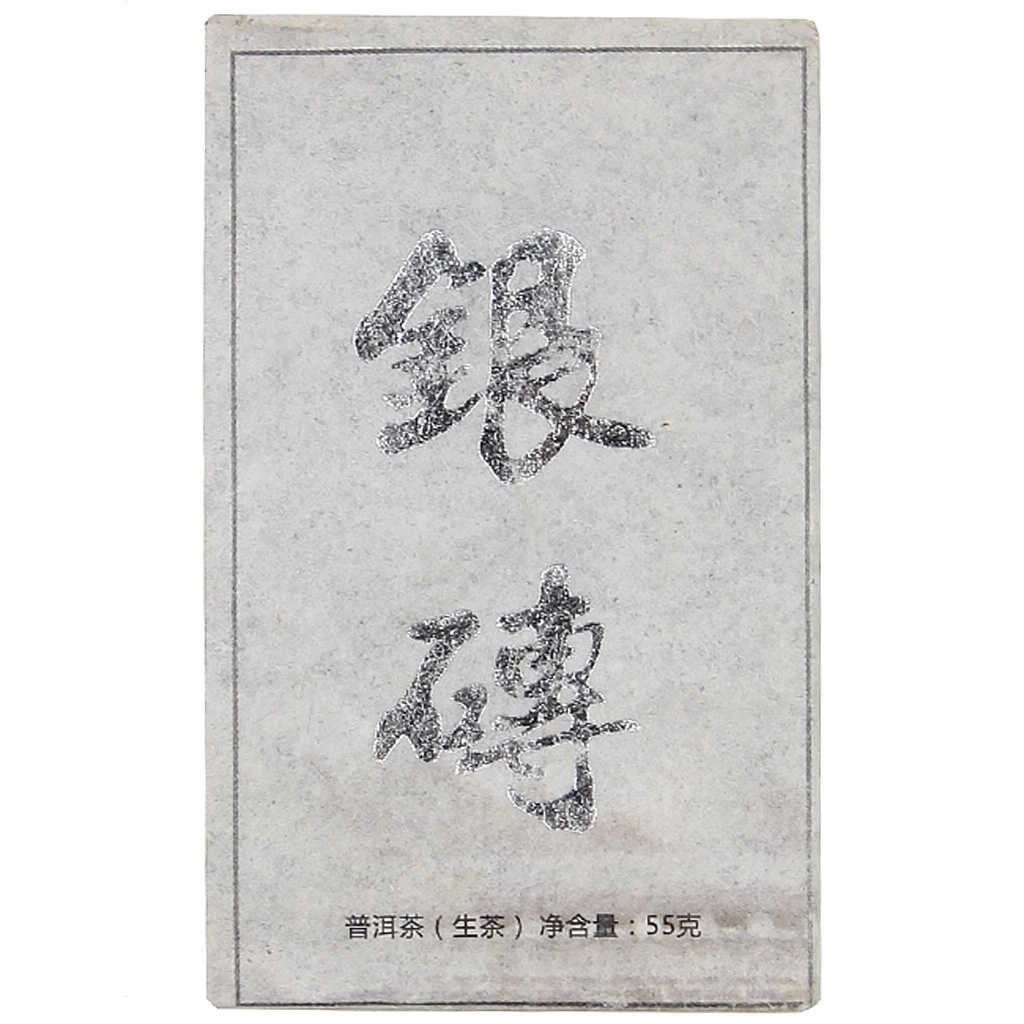 銀
磚
普洱茶（生茶） 净含量：55克